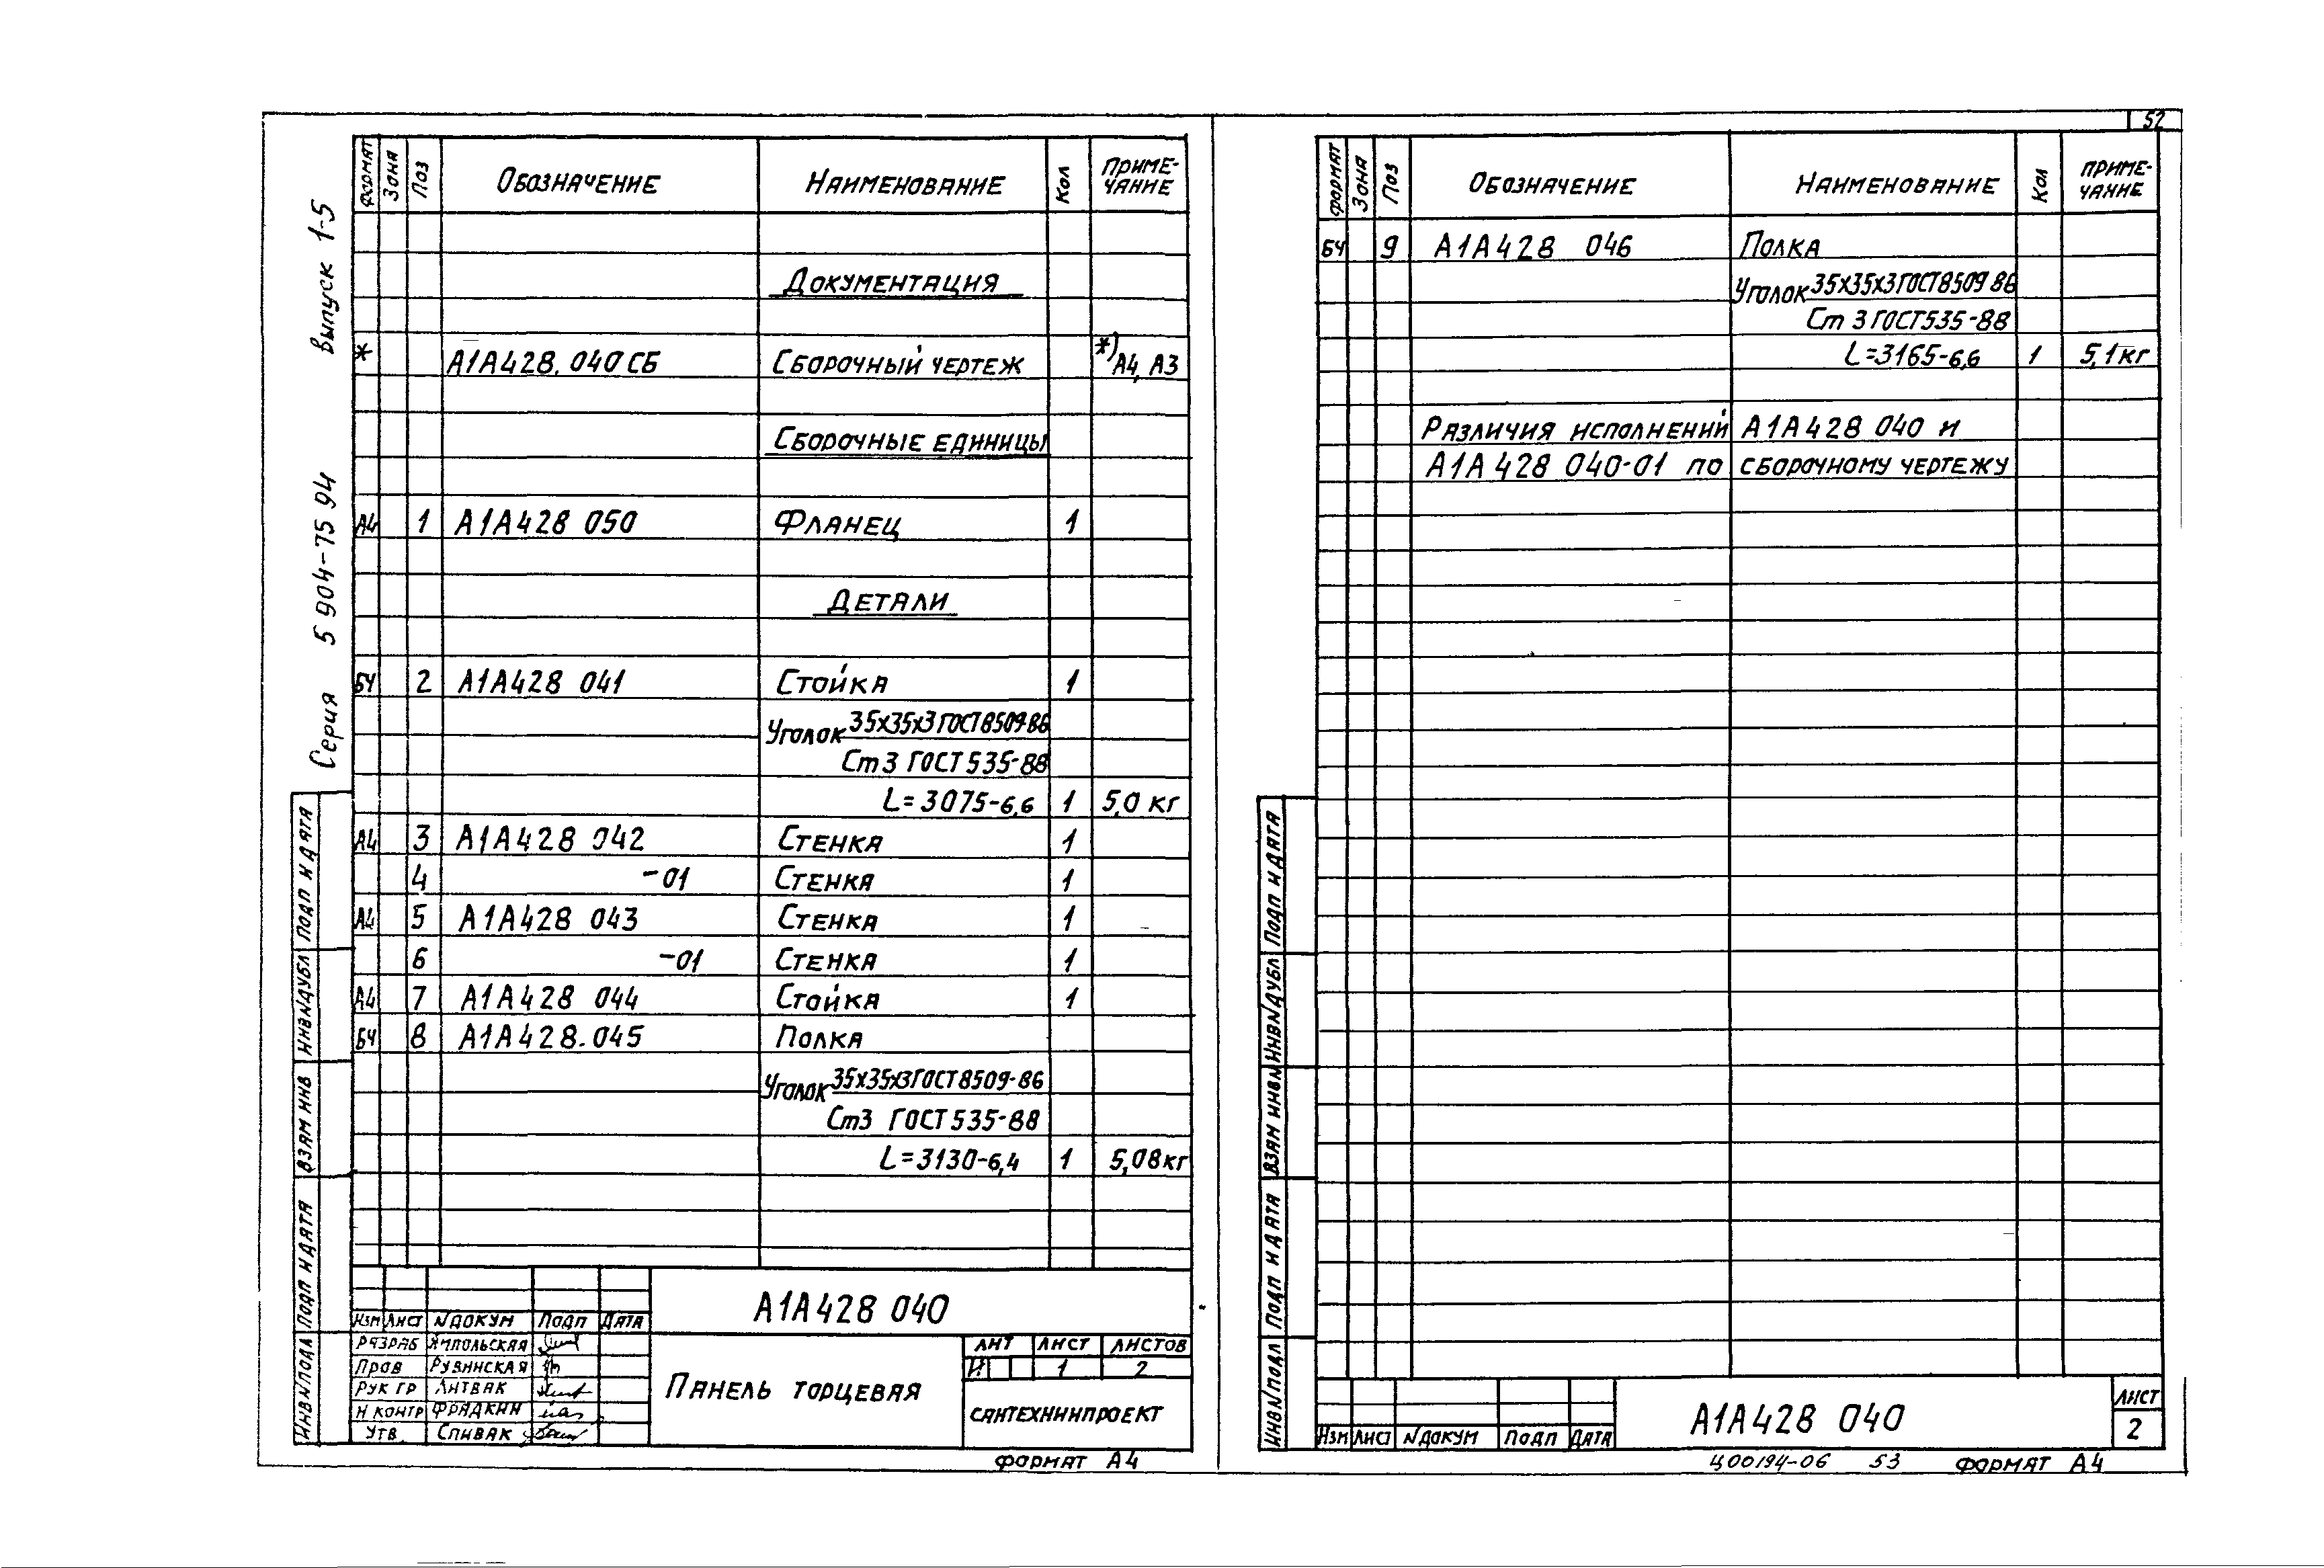 52
Серия 5 904-75 94 Выпуск 1-5
Формат Зона Поз Обозначение Наименование Кол Примечание
Документация
* А1А428.040 СБ Сборочный чертеж *) А4, А3
Сборочные единицы
А4 1 А1А428 050 Фланец 1
Детали
БЧ 2 А1А428 041 Стойка 1
Уголок 35х35х3 ГОСТ 8509-86
Ст3 ГОСТ 535-88
L=3075-6,6 1 5,0 кг
А4 3 А1А428 042 Стенка 1
4 -01 Стенка 1
А4 5 А1А428 043 Стенка 1
6 -01 Стенка 1
А4 7 А1А428 044 Стойка 1
БЧ 8 А1А428.045 Полка
Уголок 35х35х3 ГОСТ 8509-86
Ст3 ГОСТ 535-88
L=3130-6,4 1 5,08 кг
Подп и дата
Инв№дубл
Взам инв
Подп и дата
Инв№подл
А1А428 040
Изм Лист №докум Подп Дата
Разраб Ямпольская
Пров Рувинская
Рук гр Литвак
Н контр Фрадкин
Утв Спивак
Панель торцевая
Лит Лист Листов
И 1 2
Сантехниипроект
Формат А4
Формат Зона Поз Обозначение Наименование Кол Примечание
БЧ 9 А1А428 046 Полка
Уголок 35х35х3 ГОСТ 8509 86
Ст 3 ГОСТ 535-88
L=3165-6,6 1 5,1 кг
Различия исполнений А1А428 040 и
А1А428 040-01 по сборочному чертежу
Подп и дата
Инв№дубл
Взам инв№
Подп и дата
Инв№подл
Изм Лист №докум Подп Дата
А1А428 040
Лист
2
Ц00194-06 53 Формат А4